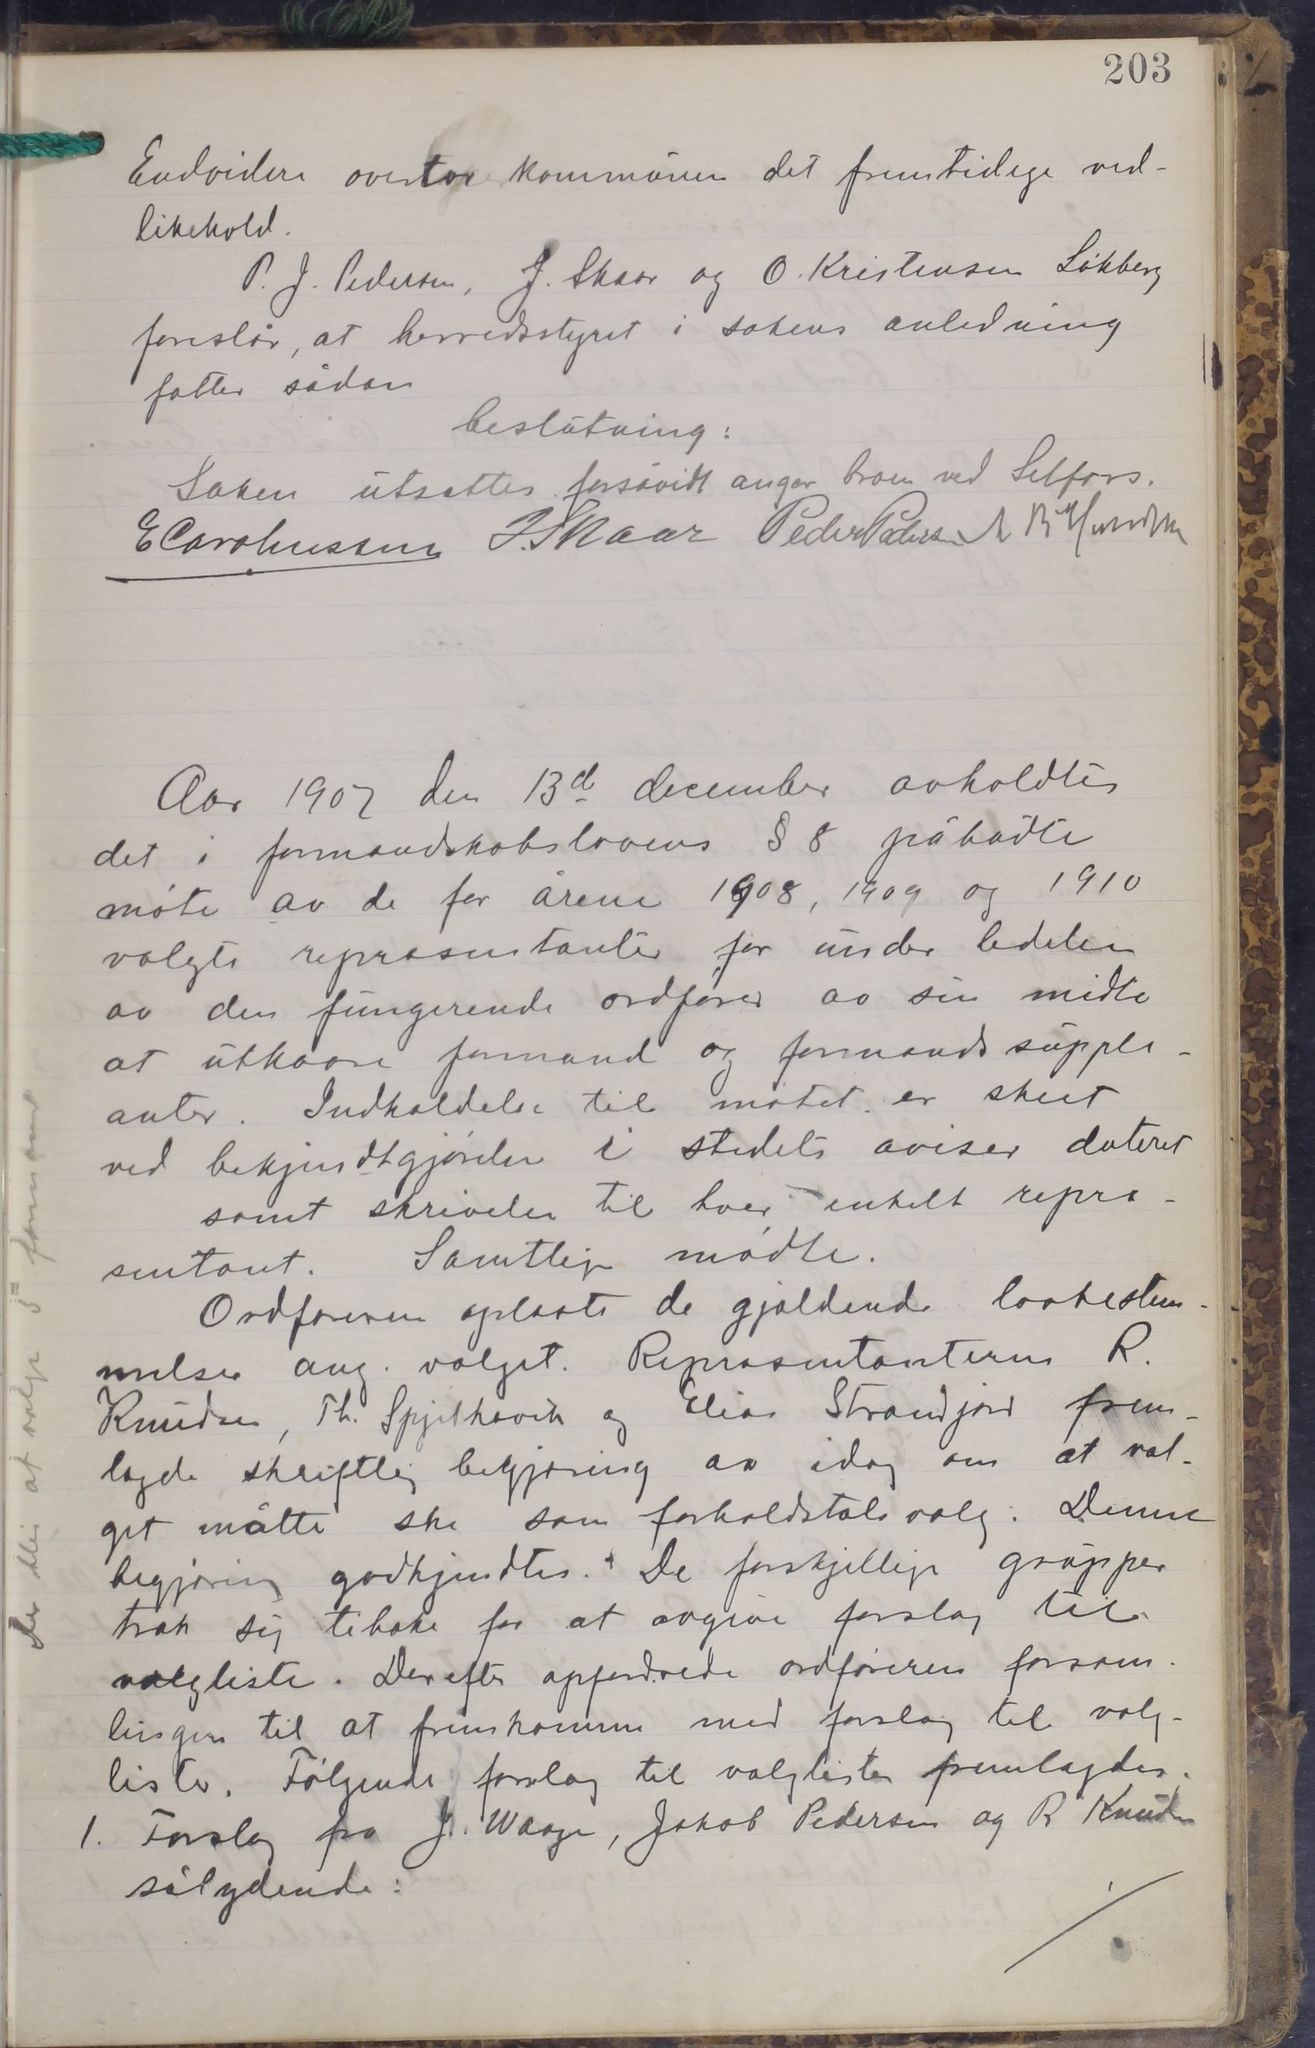 203
Endvidere overtar kommunen det fremtidige ved-
likehold.
P. J. Pedersen, J. Skaar og O. Kristensen Løkberg
foreslår, at herredsstyret i sakens anledning
fatter sådan
beslutning:
Saken utsættes forsåvidt angår broen ved Selfors.
E Caroliussen J. Skaar Peder Pedersen
Aar 1907 den 13d december avholdtes
det i formandskabslovens § 8 påbudte
møte av de for årene 1908, 1909 og 1910
valgte repræsentanter for under ledelse
av den fungerende ordfører av sin midte
at utkaare formænd og formandssupple-
anter. Indkaldelse til møtet er skeet
ved bekjendtgjørelse i stedets aviser dateret
samt skrivelse til hver enkelt repræ-
sentant. Samtlige mødte.
Ordføreren oplæste de gjældende lovbestem-
melser ang. valget. Repræsentanterne R.
Knudsen, Th. Spjelkavik og Elias Strandjord frem-
lagde skriftlig begjæring av idag om at val-
get måtte ske som forholdstalsvalg. Denne
begjæring godkjendtes. De forskjellige grupper
trak sig tilbake for at avgive forslag til
valgliste. Derefter opfordrede ordføreren forsam-
lingen til at fremkomme med forslag til valg-
lister. Følgende forslag til valglister fremlagdes.
1. Forslag fra J. Waage, Jakob Pedersen og R Knudsen
sålydende:
Der blir at vælge 5 formænd